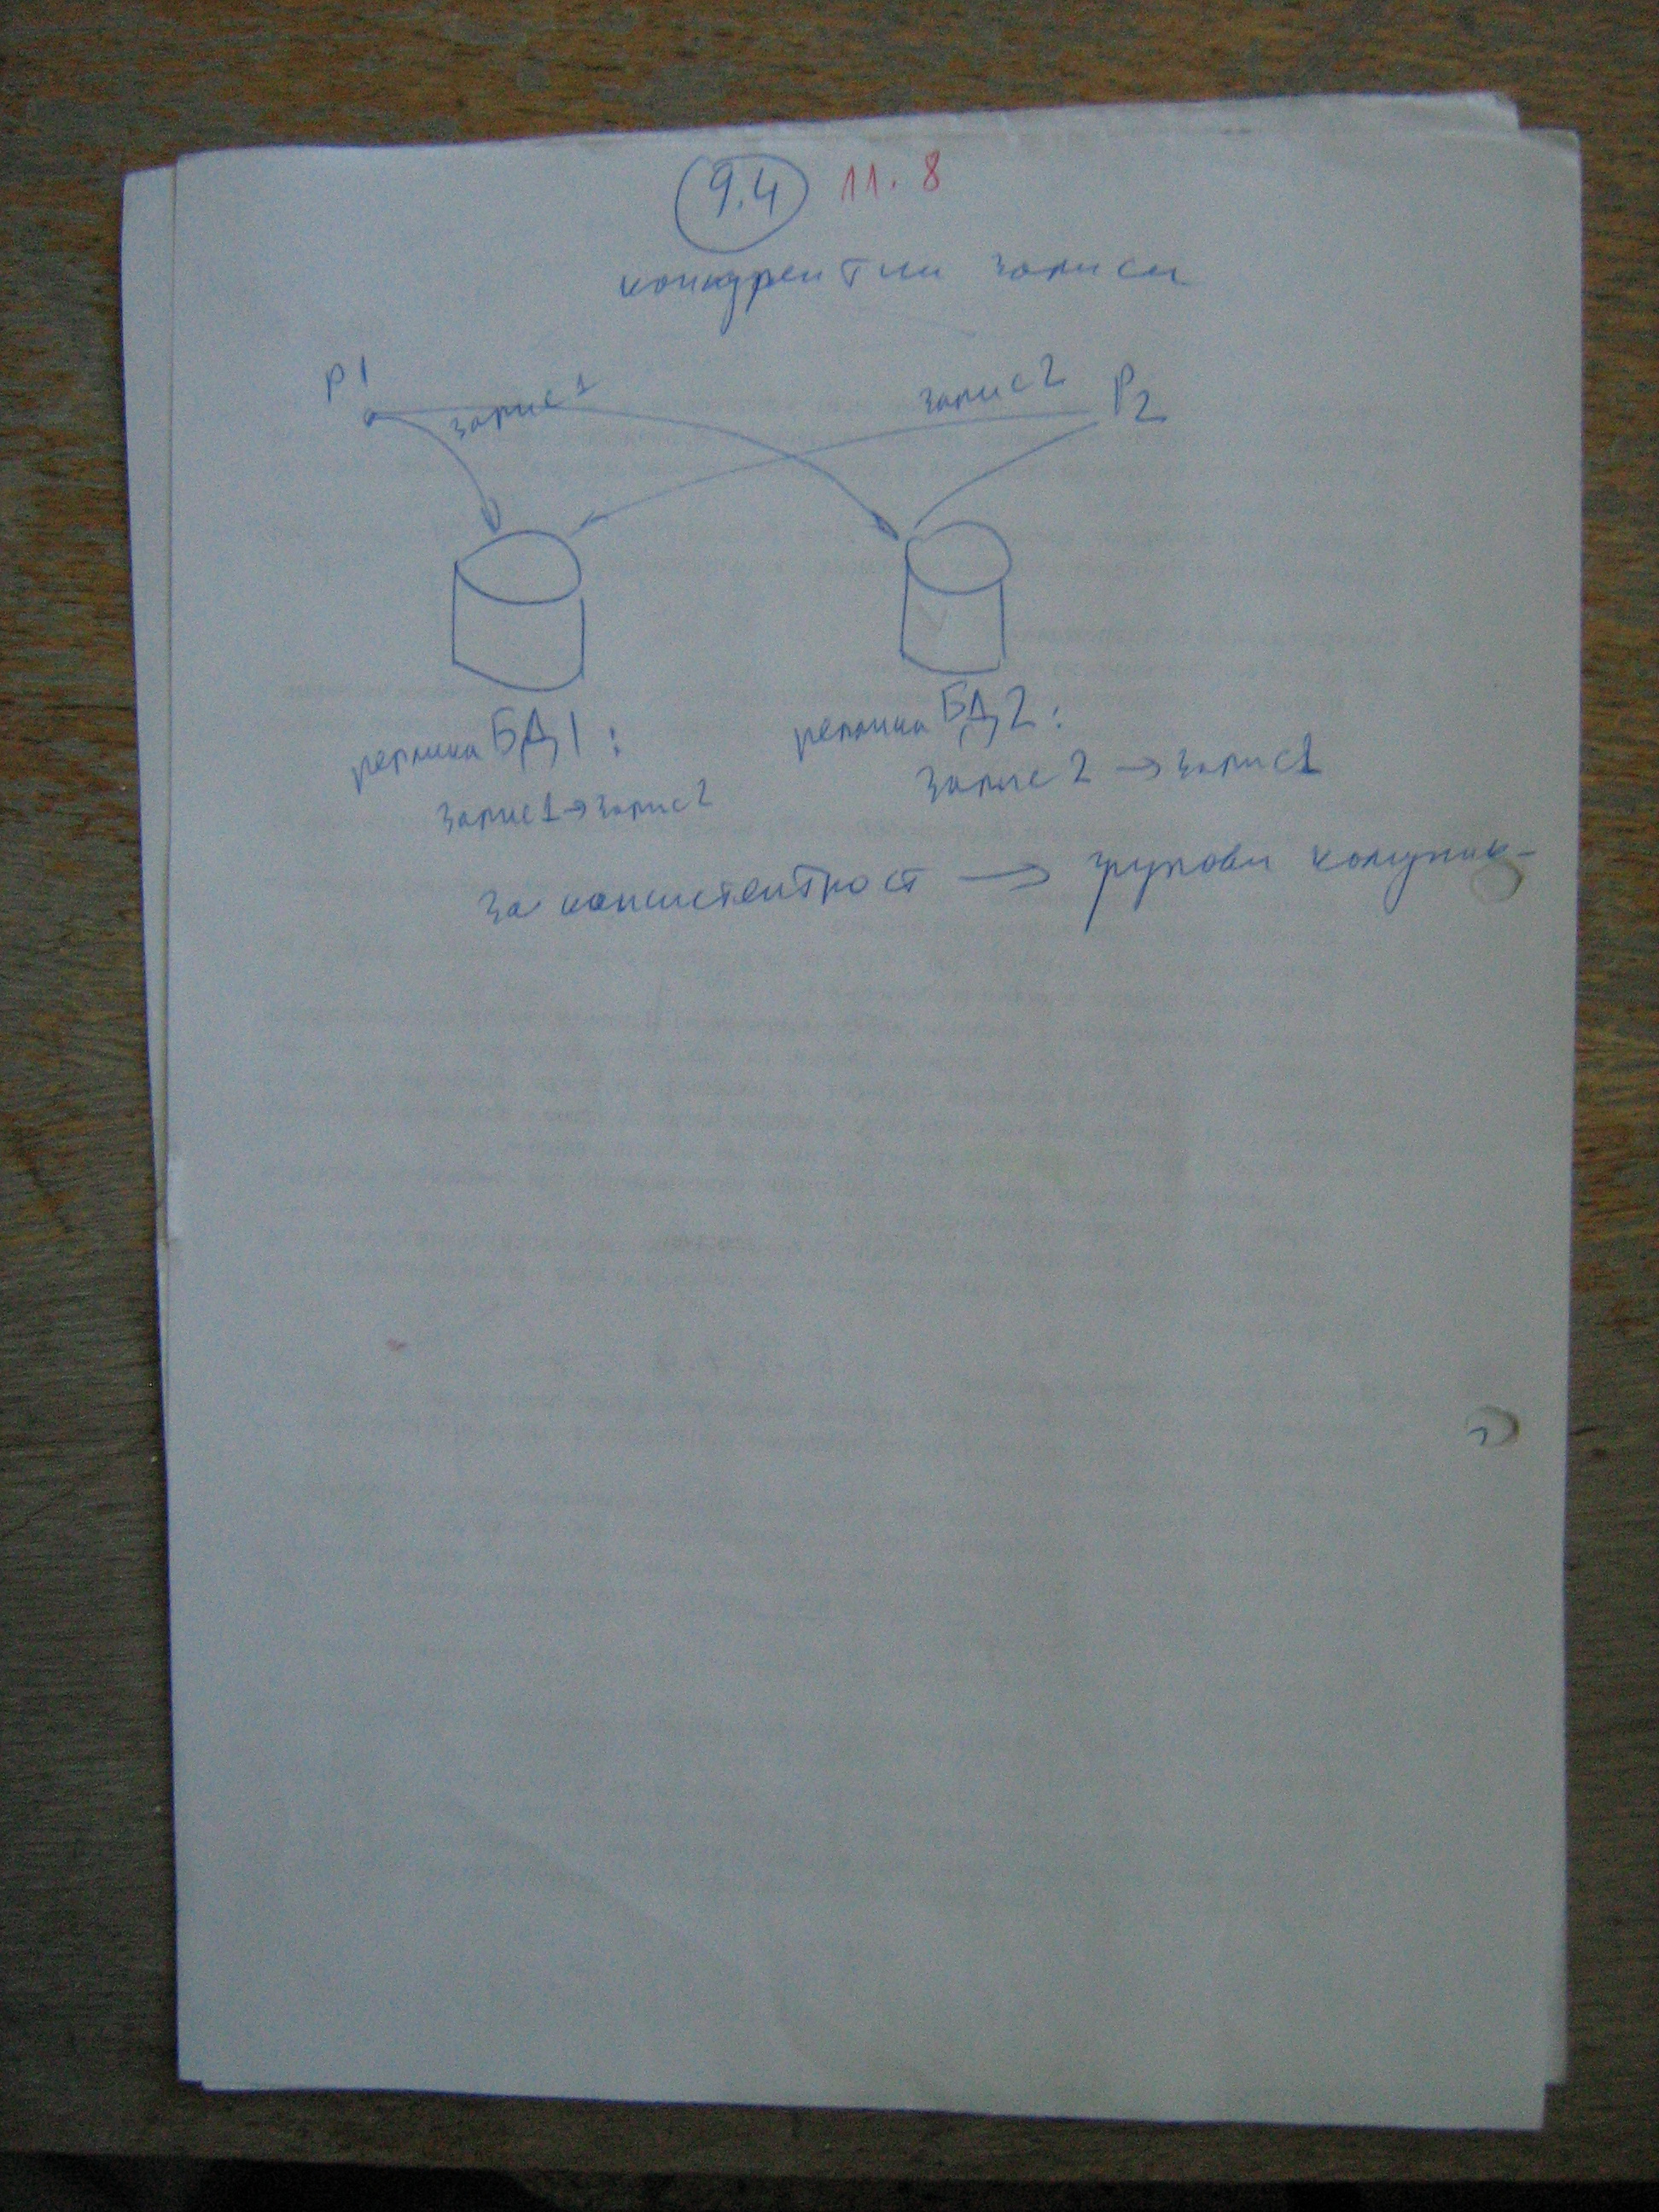 9.4 11.8
конкурентни записи
P1 запис 1 запис 2 P2
реплика БД1: реплика БД2:
запис1→запис2 запис 2 → запис1
за консистентност → групови комуник-